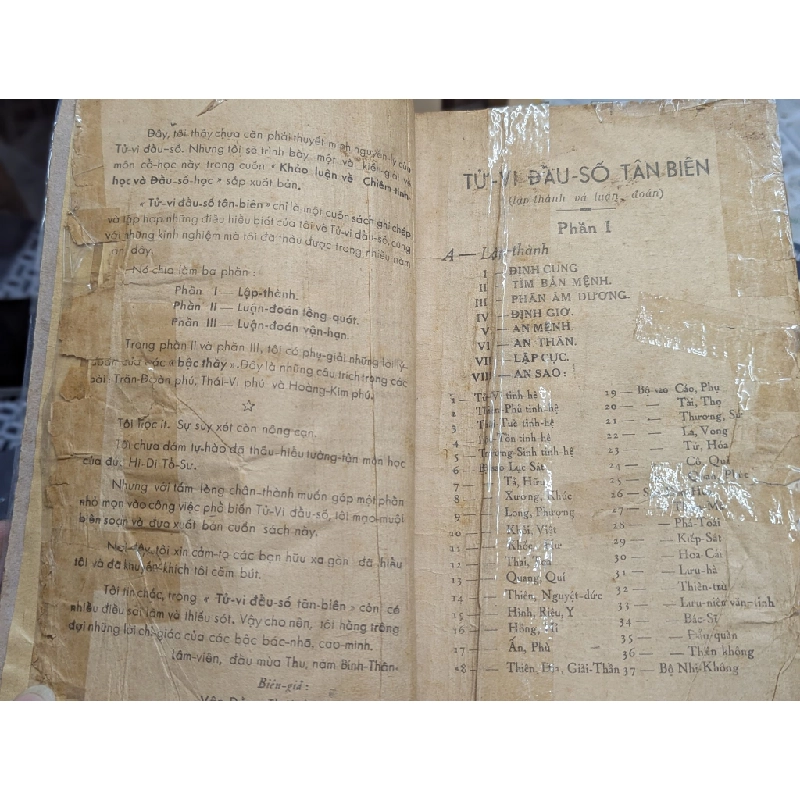 Đây, tôi thấy chưa cần phải thuyết minh nguyên-lý của
Tử-vi đầu-số. Nhưng tôi sẽ trình bày, một vài kiến giải về
môn cổ-học này trong cuốn « Khảo luận về Chiêm tinh
học và Đầu-số-học » sắp xuất bản.
« Tử-vi đầu-số tân-biên » chỉ là một cuốn sách ghi chép
và tập hợp những điều hiểu biết của tôi về Tử-vi đầu-số, cùng
với những kinh nghiệm mà tôi đã thâu được trong nhiều năm
đây.
Nó chia làm ba phần :
Phần I — Lập-thành.
Phần II — Luận-đoán tổng quát.
Phần III — Luận-đoán vận-hạn.
Trong phần II và phần III, tôi có phụ-giải những lời lý-
đoán của các « bậc thầy ». Đây là những câu trích trong các
Trần-Đoàn phú, Thái-Vi phú và Hoàng-Kim phú.
Tôi học ít. Sự suy xét còn nông cạn.
Tôi chưa dám tự-hào đã thấu-hiểu tường-tận môn học
của đức HI-DI Tổ-Sư.
Nhưng với tấm lòng chân-thành muốn góp một phần
nhỏ mọn vào công việc phổ biến Tử-Vi đầu-số, tôi mạo-muội
biên soạn và đưa xuất bản cuốn sách này.
Nơi đây, tôi xin cảm-tạ các bạn hữu xa gần đã hiểu
tôi và đã khuyến-khích tôi cầm bút.
Tôi tin chắc, trong « Tử-vi đầu-số tân-biên » còn có
nhiều điều sai lầm và thiếu sót. Vậy cho nên, tôi hằng trông
đợi những lời chỉ giáo của các bậc bác-nhã, cao-minh.
Lâm-viên, đầu mùa Thu, năm Bính-Thân
Biên-giả :
TỬ-VI ĐẦU-SỐ TÂN-BIÊN
(lập thành và luận đoán)
Phần I
A — Lập-thành
I — ĐỊNH CUNG
II — TÌM BẢN MỆNH.
III — PHÂN ÂM DƯƠNG.
IV — ĐỊNH GIỜ.
V — AN MỆNH.
VI — AN THÂN.
VII — LẬP CỤC.
VIII — AN SAO :
1 — Tử-Vi tinh-hệ
2 — Thiên-Phủ tinh-hệ
3 — Thái-Tuế tinh-hệ
4 — Lộc-Tồn tinh-hệ
5 — Trường-Sinh tinh-hệ
6 — Bộ sao Lục Sát
7 — Tả, Hữu
8 — Xương, Khúc
9 — Long, Phượng
10 — Khôi, Việt
11 — Khốc, Hư
12 — Thai, Tọa
13 — Quang, Quí
14 — Thiên, Nguyệt-đức
15 — Hình, Riêu, Y
16 — Hồng, Hỉ
17 — Ấn, Phù
28 — Thiên, Địa, Giải-Thần
19 — Bộ sao Cáo, Phụ
20 — Tài, Thọ
21 — Thương, Sứ
22 — La, Vong
23 — Tứ, Hóa
24 — Cô, Quả
25 — Quan, Phúc
26 —
27 —
28 — Phá-Toái
29 — Kiếp-Sát
30 — Hoa-Cái
31 — Lưu-hà
32 — Thiên-trù
33 — Lưu-niên văn-tinh
34 — Bác-Sỹ
35 — Đẩu-quân
36 — Thiên không
37 — Bộ Nhị Không